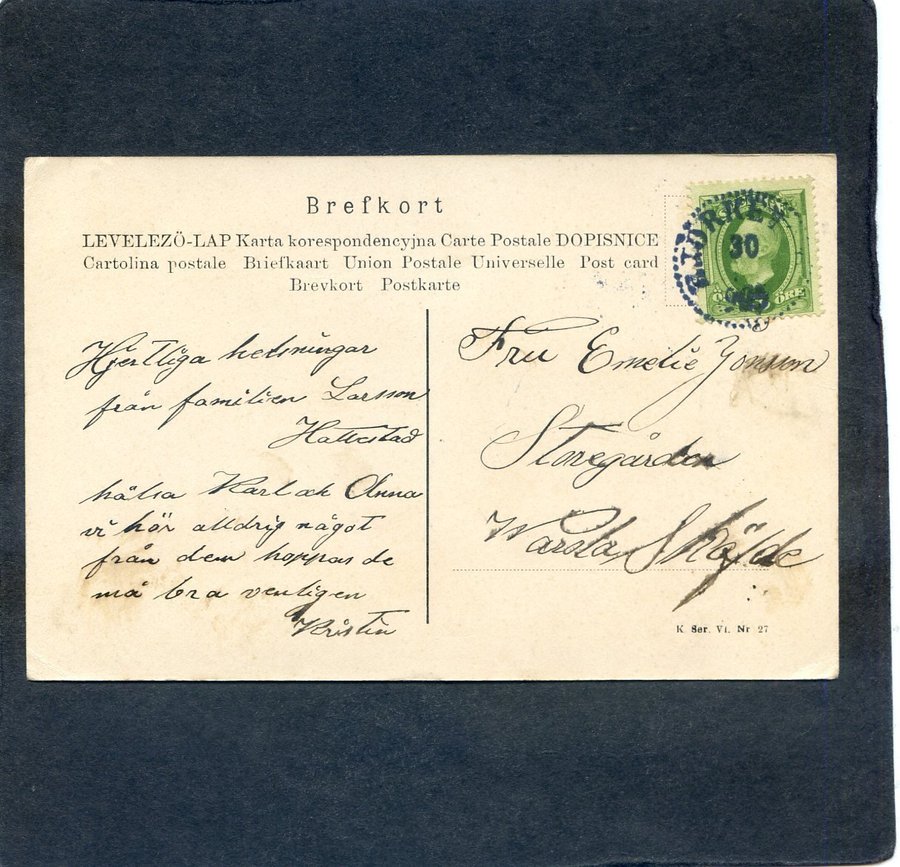 Brefkort
LEVELEZÖ-LAP Karta korespondencyjna Carte Postale DOPISNICE
Cartolina postale Briefkaart Union Postale Universelle Post card
Brevkort Postkarte
30
ÖRE
Hjertliga helsningar
från familien Larsson
Hattestad
hälsa Karl ock Anna
vi hör alldrig något
från dem hoppas de
må bra venligen
Kristin
Fru Emelie Jonson
Storegården
Warola Sköfde
K. Ser. VI. Nr 27